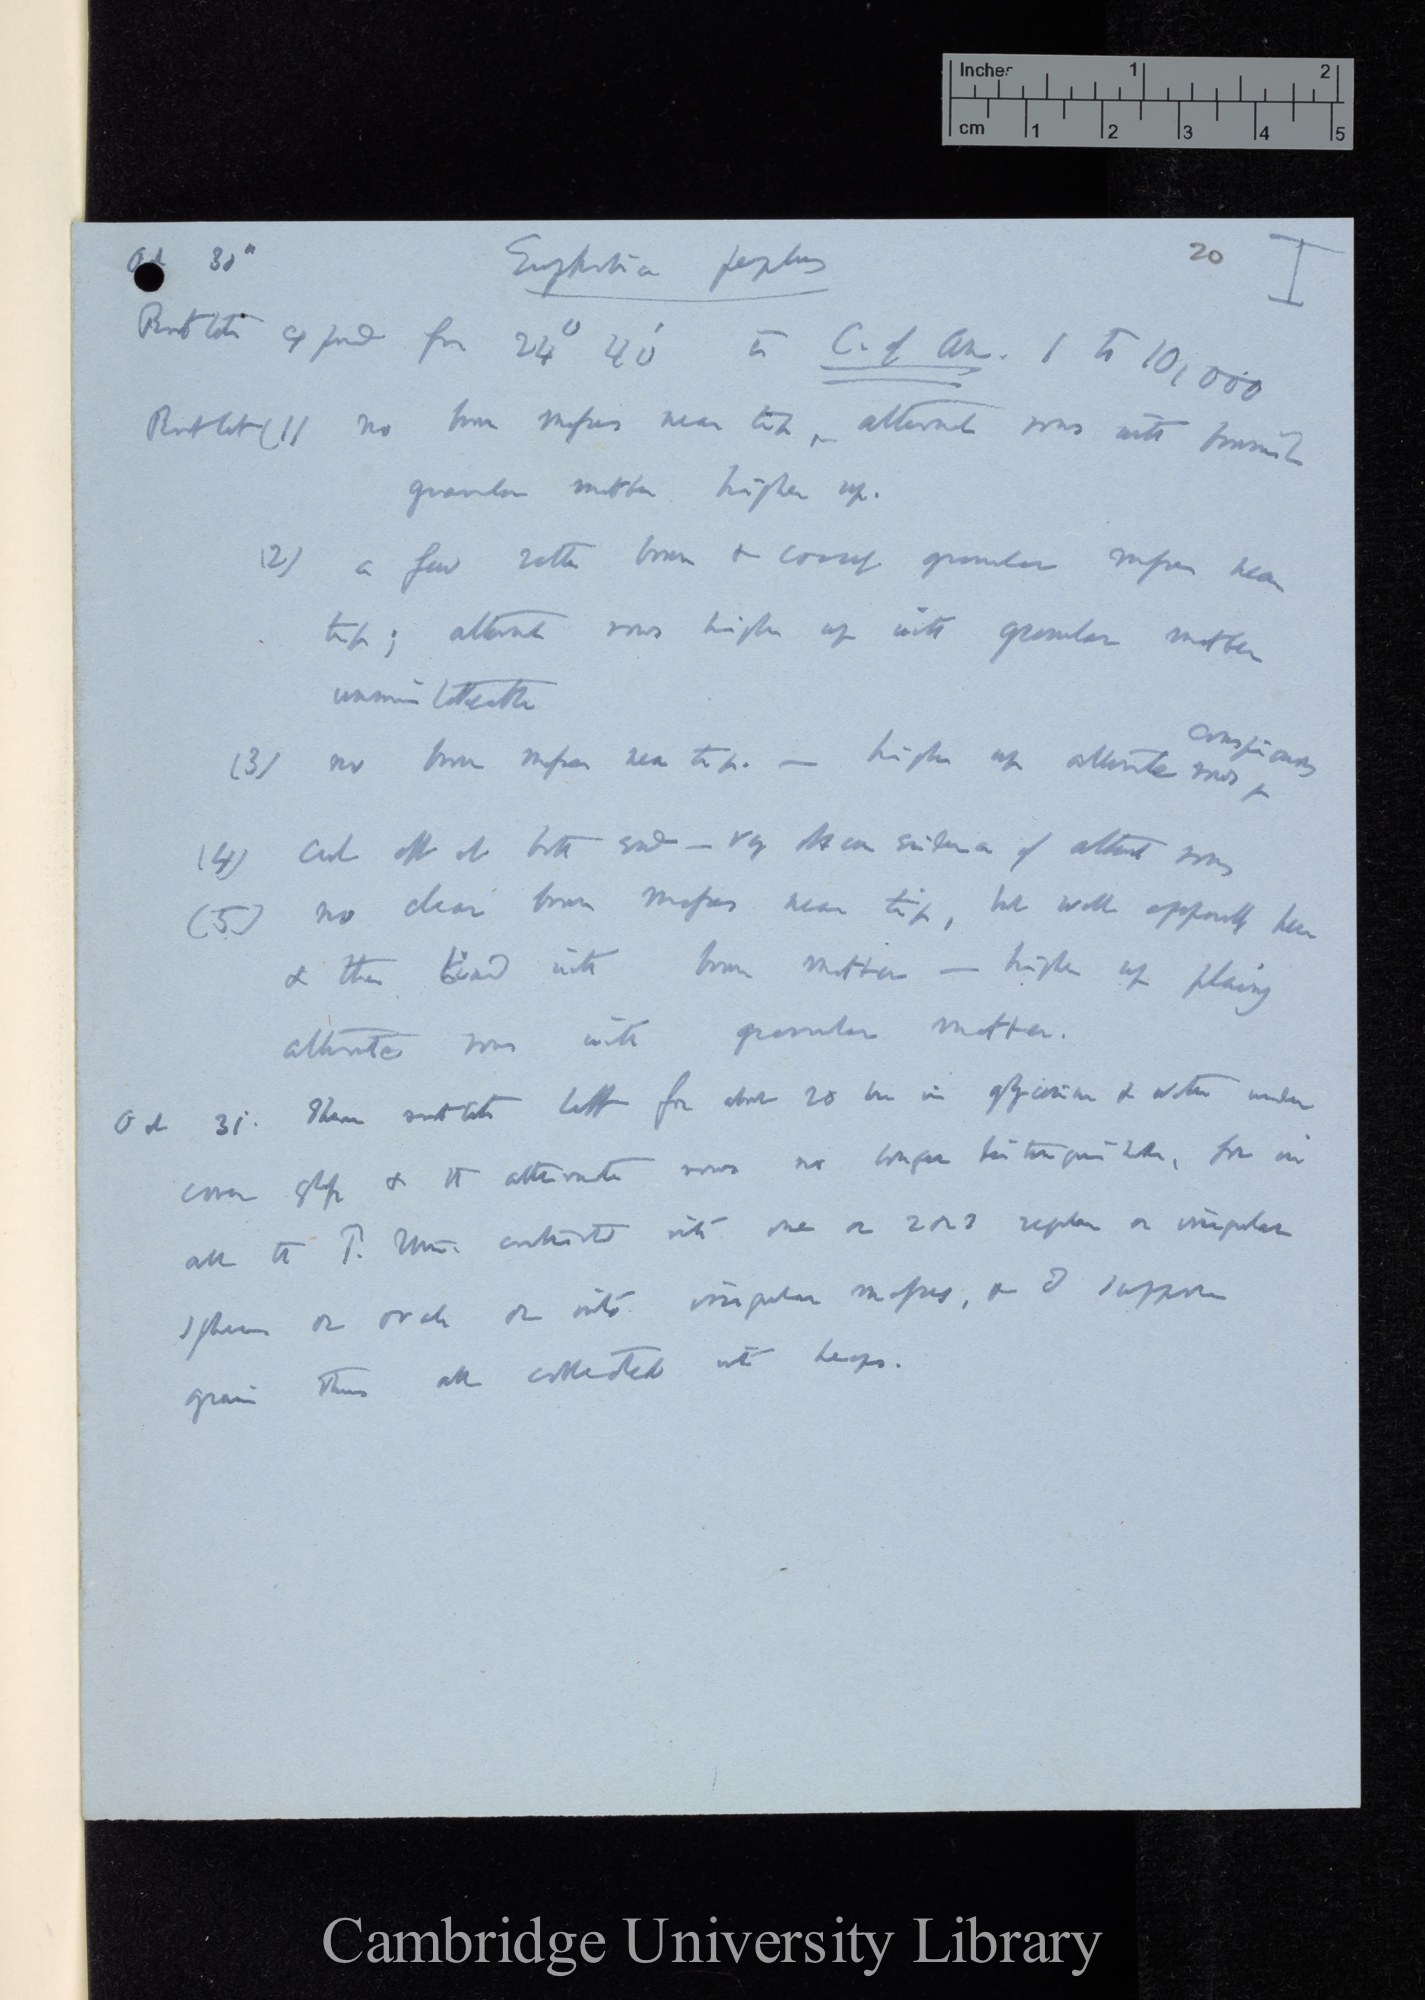 Inches 1 2
cm 1 2 3 4 5
Oct 30" Euphorbia peplus 20 I
Rootlets exposed for 24° 40' to C. of Am. 1 to 10,000
Rootlet (1) no brown masses near tip, alternate rows with brownish
granular matter higher up.
(2) a few rather brown & coarsely granular masses near
tip; alternate rows higher up with granular matter
unmistakeable
(3) no brown masses near tip. — higher up alternate rows conspicuous
(4) cut off at both ends — very clear evidence of alternate rows
(5) no clear brown masses near tip, but walls apparently here
& there lined with brown matter — higher up plainly
alternate rows with granular matter.
Oct 31. These rootlets left for about 20 hrs in glycerine & water under
cover glass & the alternate rows no longer distinguishable, for in
all the P. Utric. contracted into one or 2 or 3 regular or irregular
spheres or ovals or into irregular masses, & I suppose
grains thus all collected into heaps.
Cambridge University Library